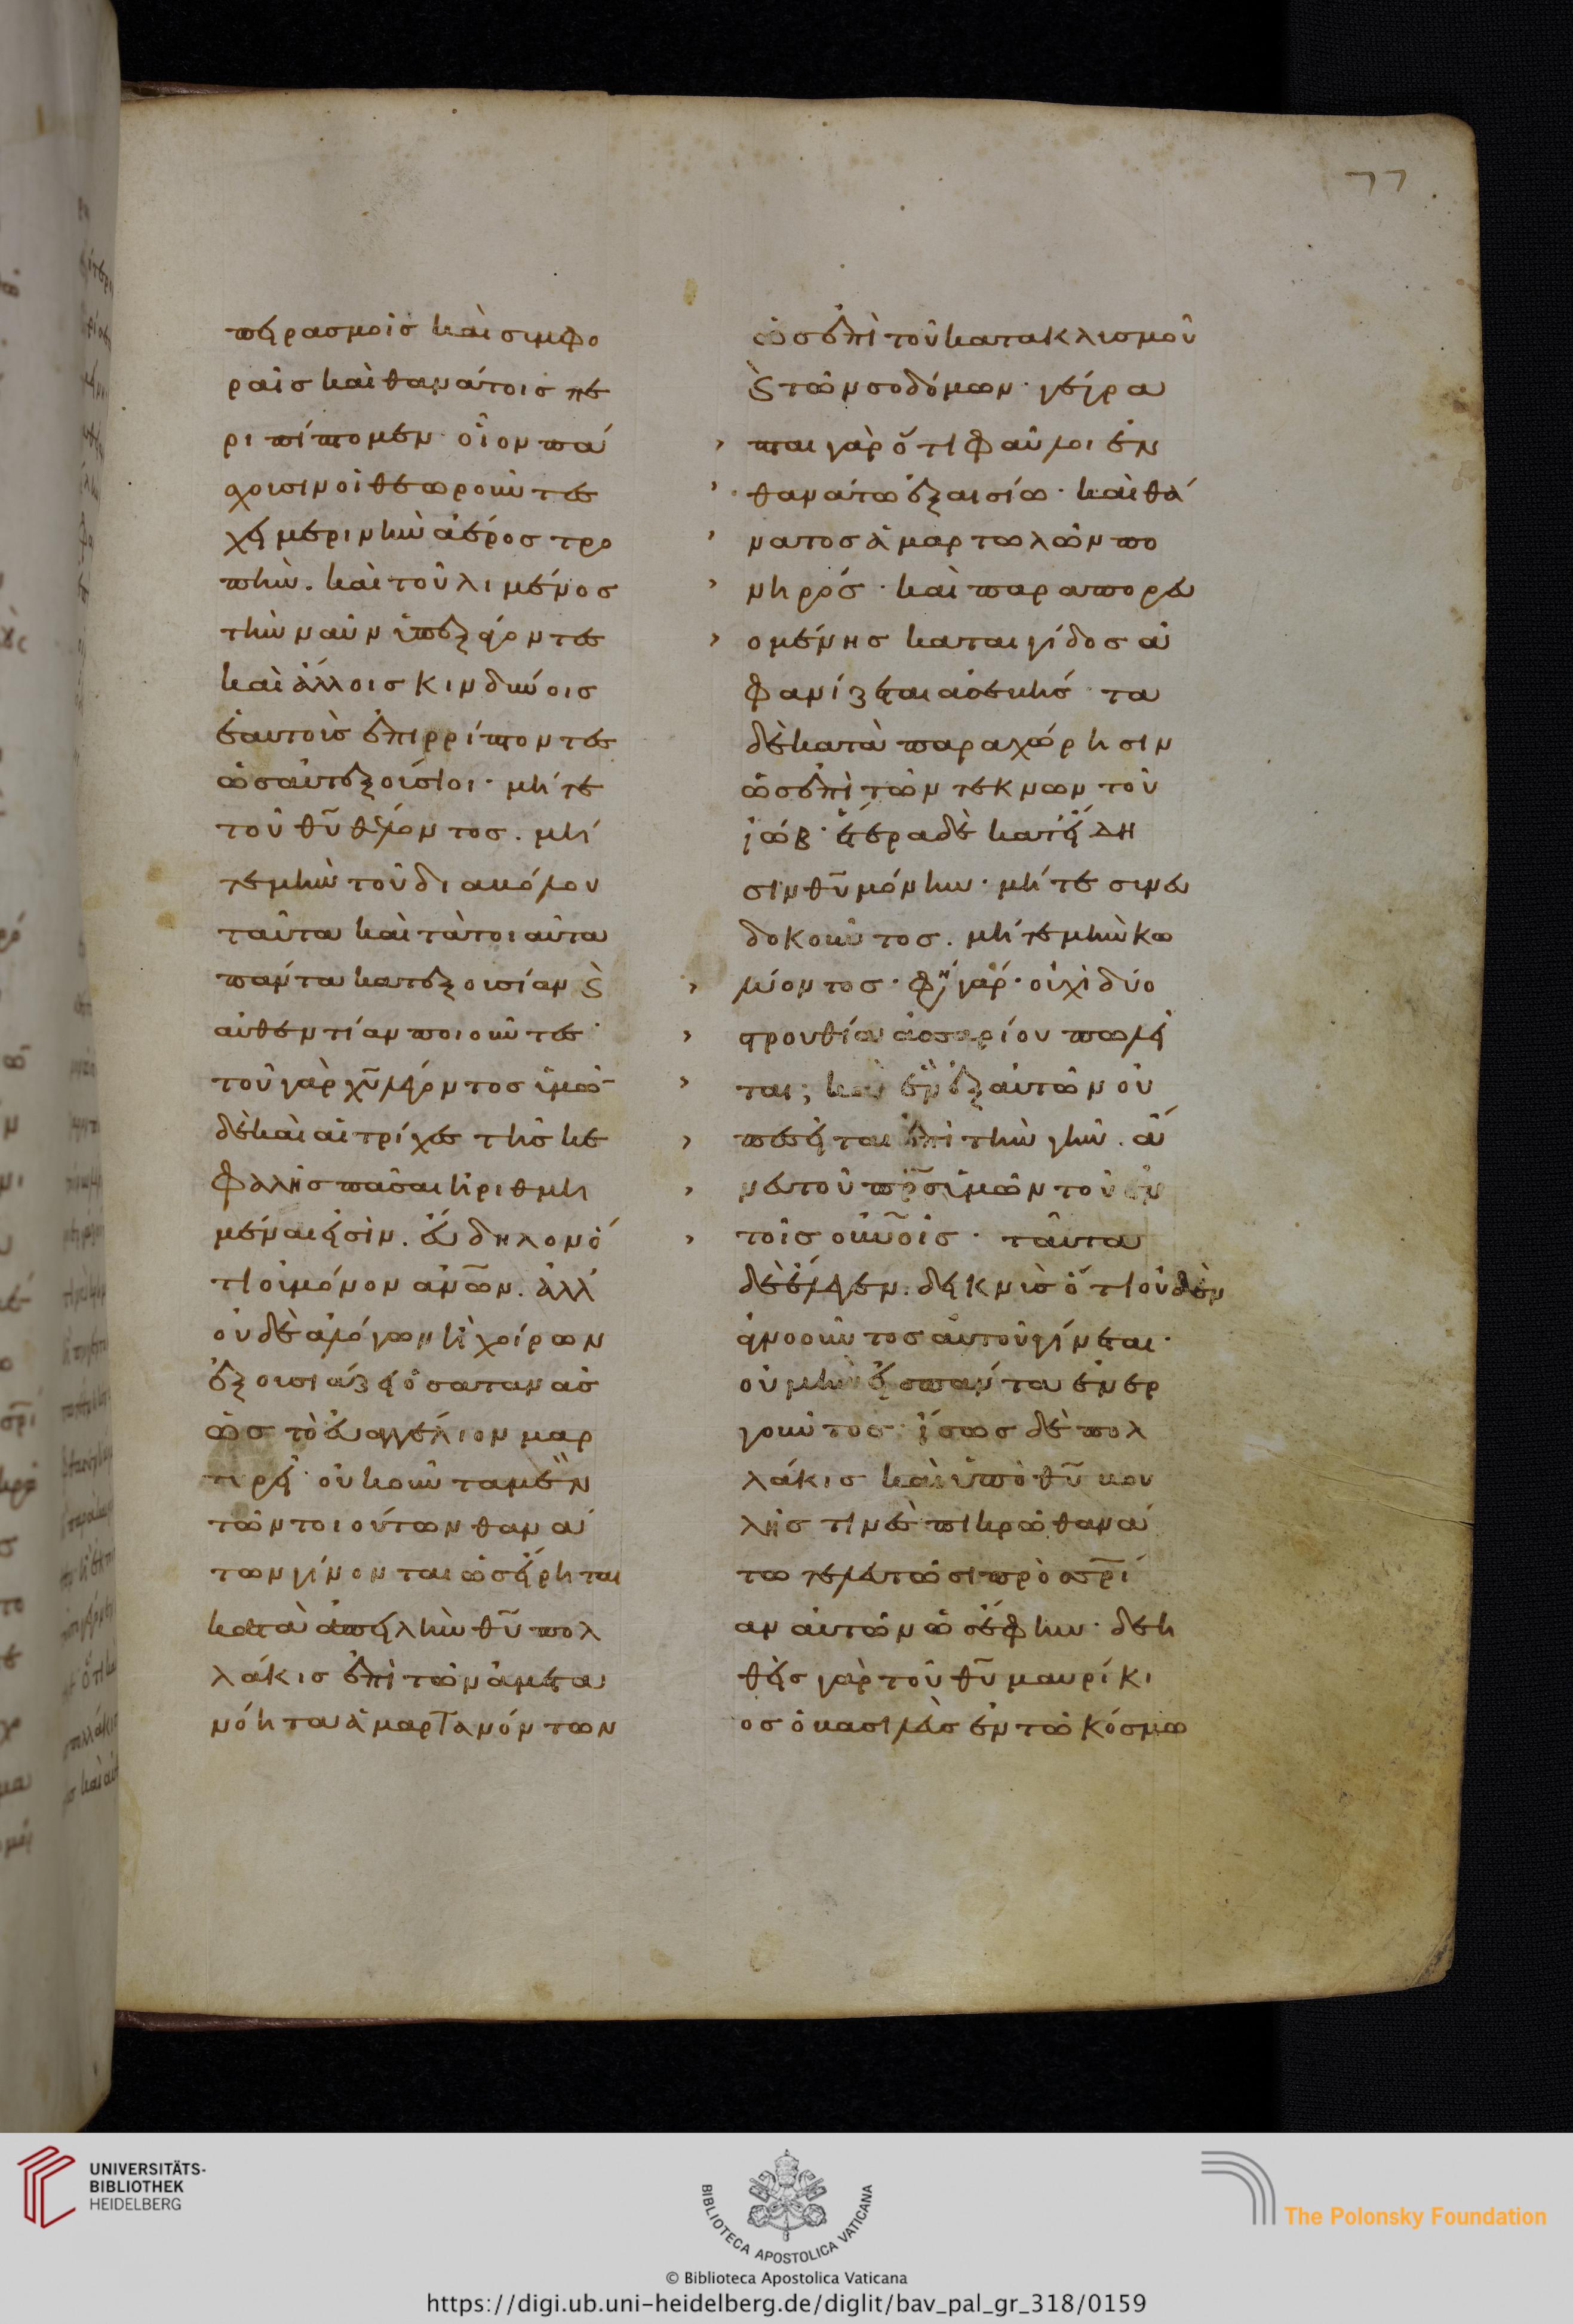 πειρασμοῖς καὶ συμφο
ραῖς καὶ θανάτοις πε
ριπίπτομεν· οἷον πά
χουσιν οἱ θεωροῦντες
χειμερινὴν ἀέρος τρο
πὴν. καὶ τοῦ λιμένος
τὴν ναῦν ὑπεξάγοντες
καὶ ἄλλοις κινδύνοις
ἑαυτοὺς ἐπιρρίπτοντες
ὡς αὐτεξούσιοι· μήτε
τοῦ θῦ θέλοντος. μή
τε μὴν τοῦ διαβόλου
ταῦτα καὶ τὰ τοιαῦτα
πάντα κατεξουσίαν ϗ
αὐθεντίαν ποιοῦντες·
τοῦ γὰρ χῦ λέγοντος ὑμῶν
δὲ καὶ αἱ τρίχες τῆς κε
φαλῆς πᾶσαι ἠριθμη
μέναι εἰσὶν. εὔδηλον ὅ
τι οὐ μόνον ἀνων. ἀλλ
οὐδὲ ἀλόγων ἢ χοίρων
ἐξουσιάζει ὁ σατανᾶς
ὡς τὸ εὐαγγέλιον μαρ
τυρεῖ· οὐκοῦν τὰ μὲν
τῶν τοιούτων θανά
των γίνονται ὡς εἴρηται
κατὰ ἀπειλὴν θῦ πολ
λάκις ἐπὶ τῶν ἀμετα
νόητα ἁμαρτανόντων
77
ὡς ἐπὶ τοῦ κατακλυσμοῦ
ϗ τῶν σοδόμων· γέγρα
πται γὰρ ὅτι φαῦλοι ἐν
θανάτω ἐξαισίω· καὶ θά
νατος ἁμαρτωλῶν πο
νηρός· καὶ παραπορευ
ομένης καταιγίδος ἀ
φανίζεται ἀσεβής· τὰ
δὲ κατὰ παραχώρησιν
ὡς ἐπὶ τῶν τέκνων τοῦ
ἰώβ· ἕτερα δὲ κατ εἴδη
σιν θῦ μόνην· μήτε συνευ
δοκοῦντος. μήτε μὴν κω
λύοντος· φη γάρ· οὐχὶ δύο
στρουθία ἀσσαρίου πωλεῖ
ται; καὶ ἓν ἐξ αὐτῶν οὐ
πεσεῖται ἐπὶ τὴν γῆν. ἄ
νευ τοῦ πρς ὑμῶν τοῦ ἐν
τοῖς οὐνοῖς· ταῦτα
δὲ ἔλεγεν. δεικνὺς ὅτι οὐδὲν
ἀγνοοῦντος αὐτοῦ γίνεται·
οὐ μὴν εἰς πάντα ἐνερ
γοῦντος· ἴσως δὲ πολ
λάκις καὶ ὑπὸ θῦ βου
λῆς τινὲς πικρῶ θανά
τω τελευτῶσι πρὸς σρί
αν αὐτῶν ὡς ἔφην· δεη
θεὶς γὰρ τοῦ θῦ μαυρίκι
ος ὁ βασιλεὺς ἐν τῶ κόσμω
UNIVERSITÄTS-
BIBLIOTHEK
HEIDELBERG
BIBLIOTECA APOSTOLICA VATICANA
The Polonsky Foundation
© Biblioteca Apostolica Vaticana
https://digi.ub.uni-heidelberg.de/diglit/bav_pal_gr_318/0159